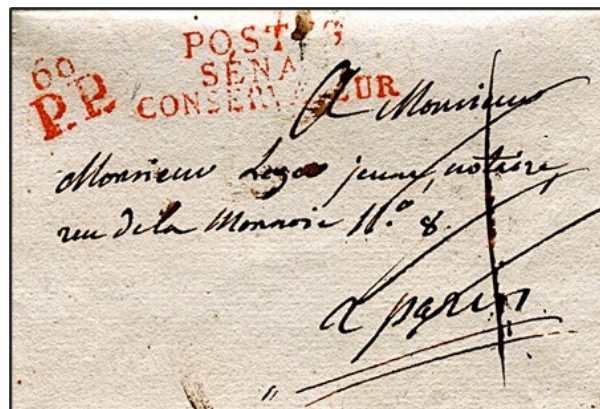 POSTES
SÉNA
CONSERVATEUR
60
P.P.
A Monsieur
Monsieur jeune, notaire,
rue de la Monnoie N.o 8.
a paris